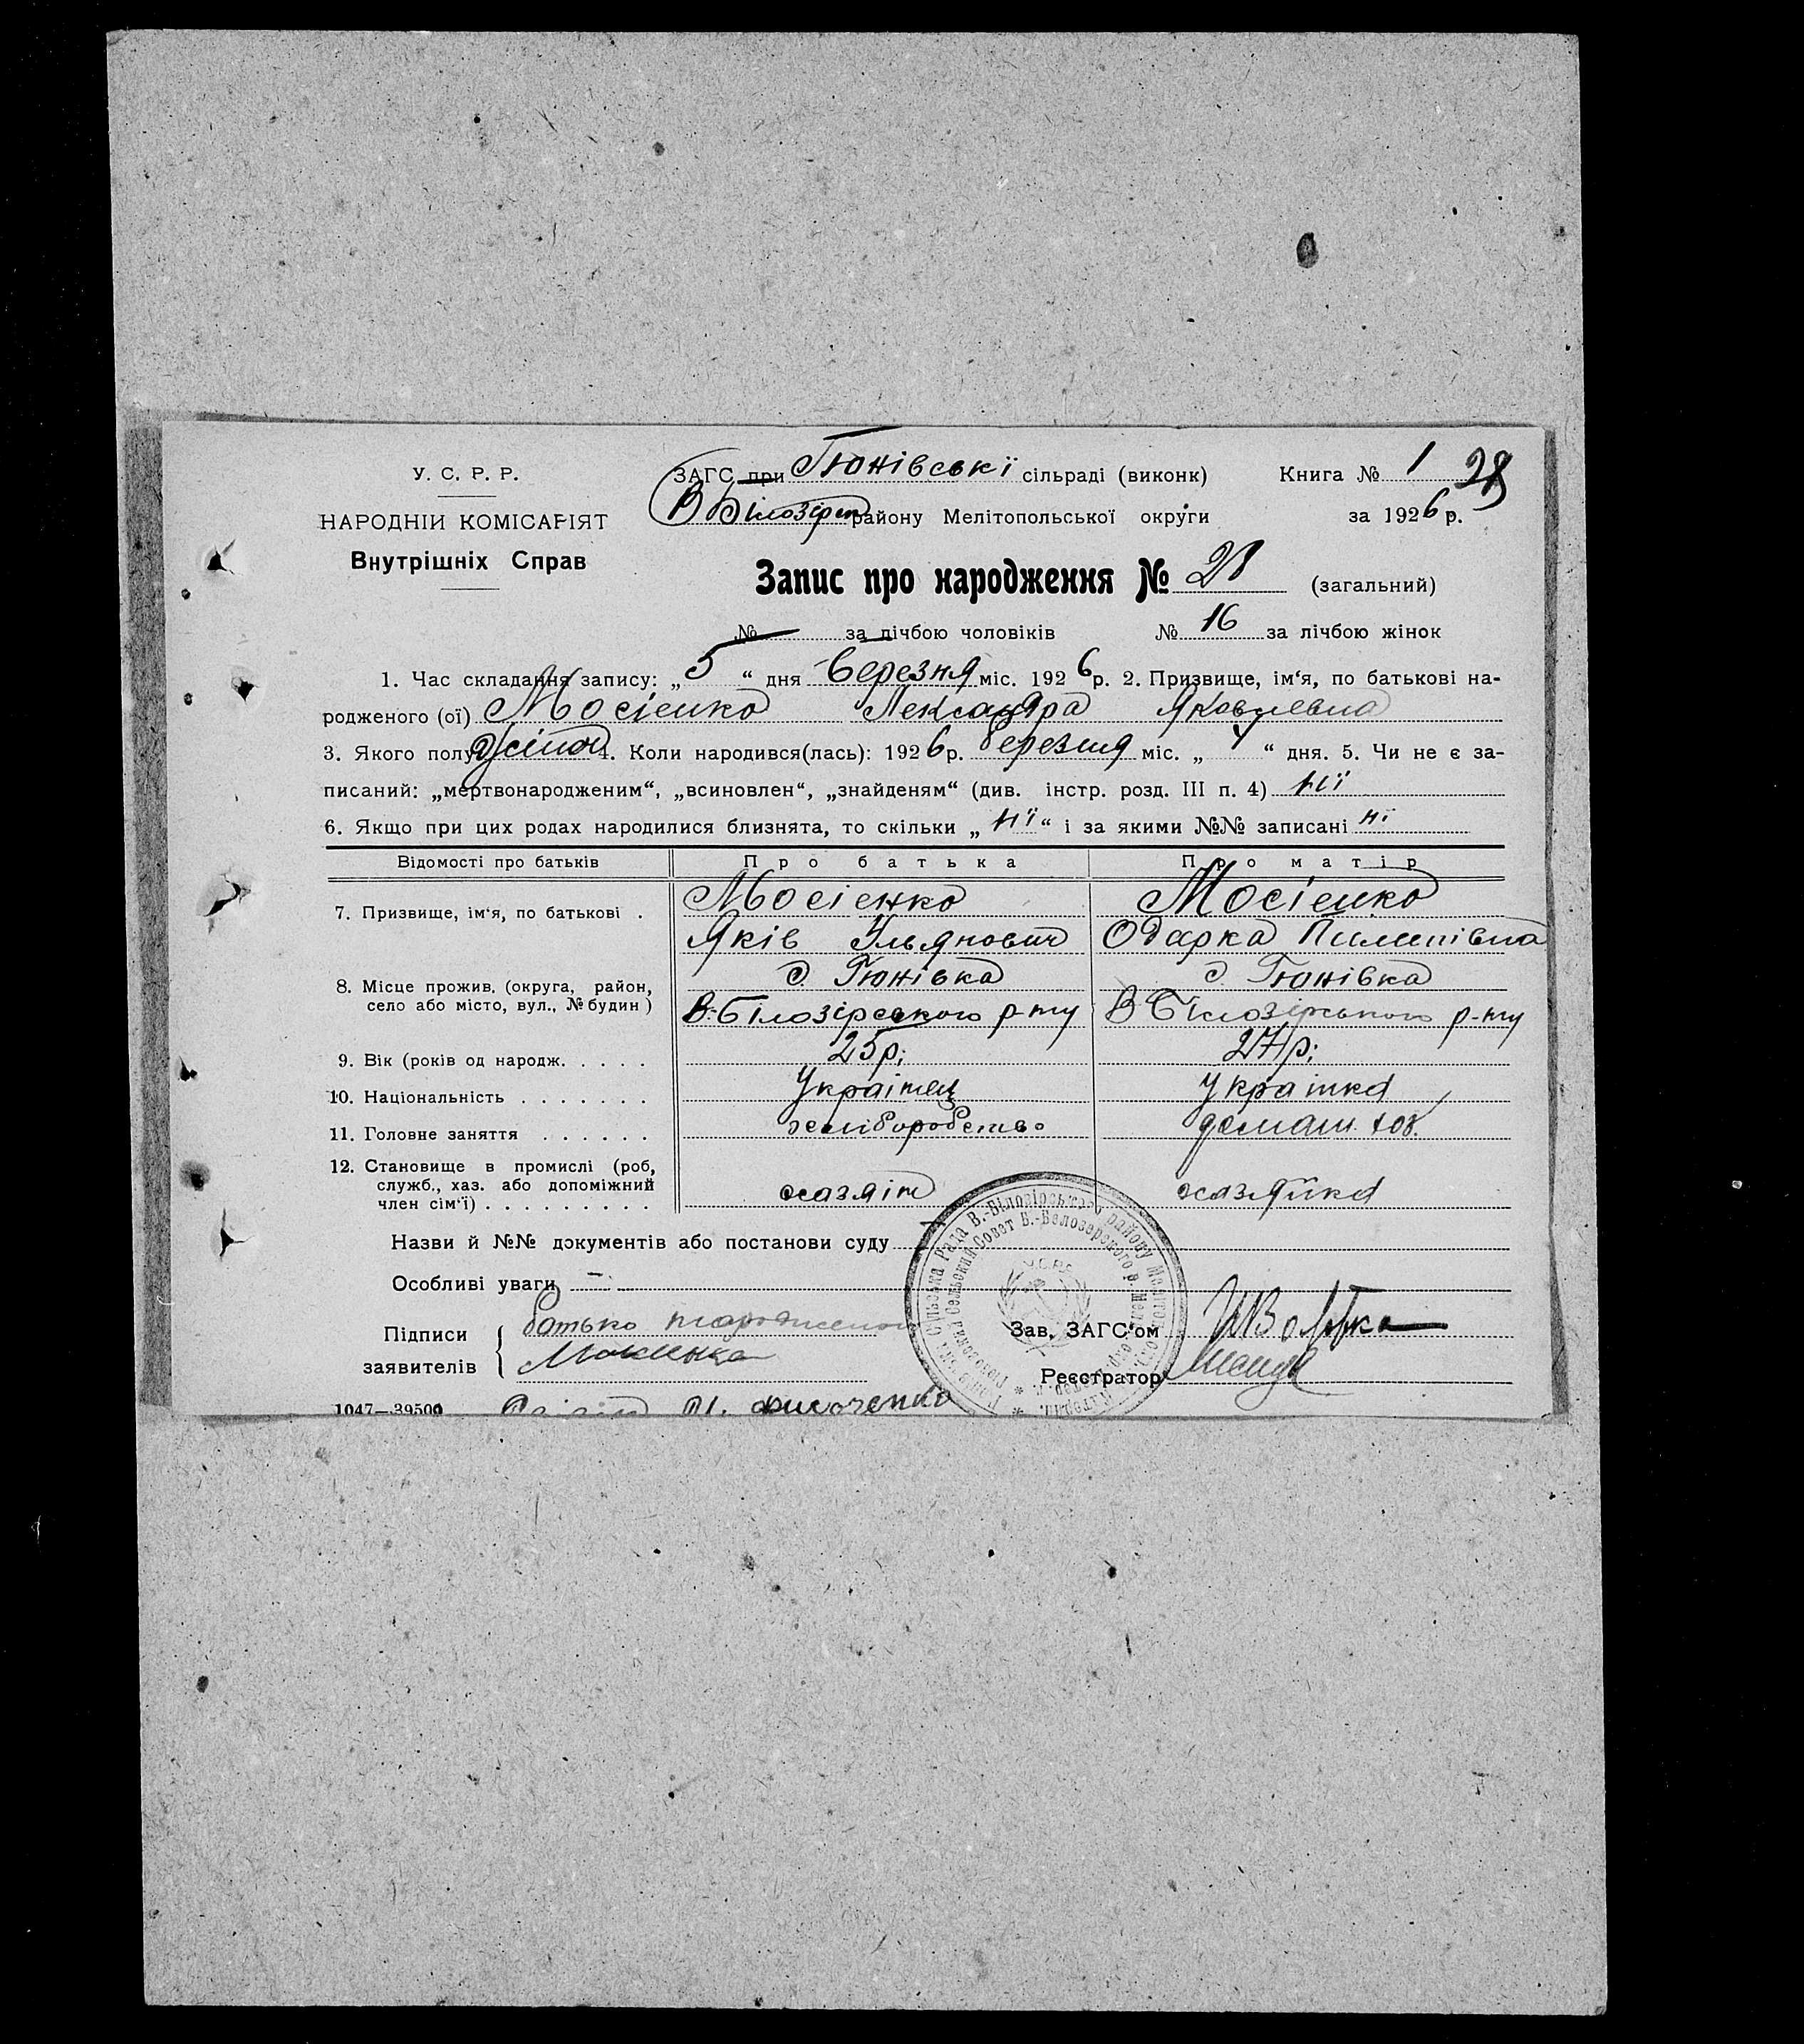 У. С. Р. Р.
НАРОДНІЙ КОМІСАРІЯТ
Внутрішніх Справ
ЗАГС при Гюнівські сільраді (виконк) Книга № 1 28
В Білозірк району Мелітопольської округи за 1926 р.
Запис про народження № 28 (загальний)
№ за лічбою чоловіків № 16 за лічбою жінок
1. Час складання запису: „5“ дня березня міс. 1926 р. 2. Призвище, ім‘я, по батькові на-
родженого (ої) Мосіенко Лександра Яковлевна
3. Якого полу жіноч 4. Коли народився(лась): 1926 р. березня міс. „4“ дня. 5. Чи не є за-
писаний: „мертвонародженим“, „всиновлен“, „знайденям“ (див. інстр. розд. III п. 4) ні
6. Якщо при цих родах народилися близнята, то скільки „ні“ і за якими №№ записані ні
Відомості про батьків Про батька Про матір
7. Призвище, ім‘я, по батькові . Мосіенко Мосіенко
Яків Ульянович Одарка Пилипівна
8. Місце прожив. (округа, район, с. Гюнівка с. Гюнівка
село або місто, вул., № будин) В-Білозірского р-ну В Білозірського р-ну
9. Вік (років од народж. . . . . 25 р; 27 р;
10. Національність . . . . . . . Украінец Украінка
11. Головне заняття . . . . . . хліборобство домаш. хоз.
12. Становище в промислі (роб,
служб., хаз. або допоміжний хазяін хазяйка
член сім‘ї) . . . . . . . . .
Назви й №№ документів або постанови суду
Особливі уваги —
Підписи батько народженої
заявителів
Зав. ЗАГС‘ом
Реєстратор
Сільська Рада В.-Білозірського району
Сельский Совет В.-Белозерского р.
У.С.Р.Р.
1047—39500